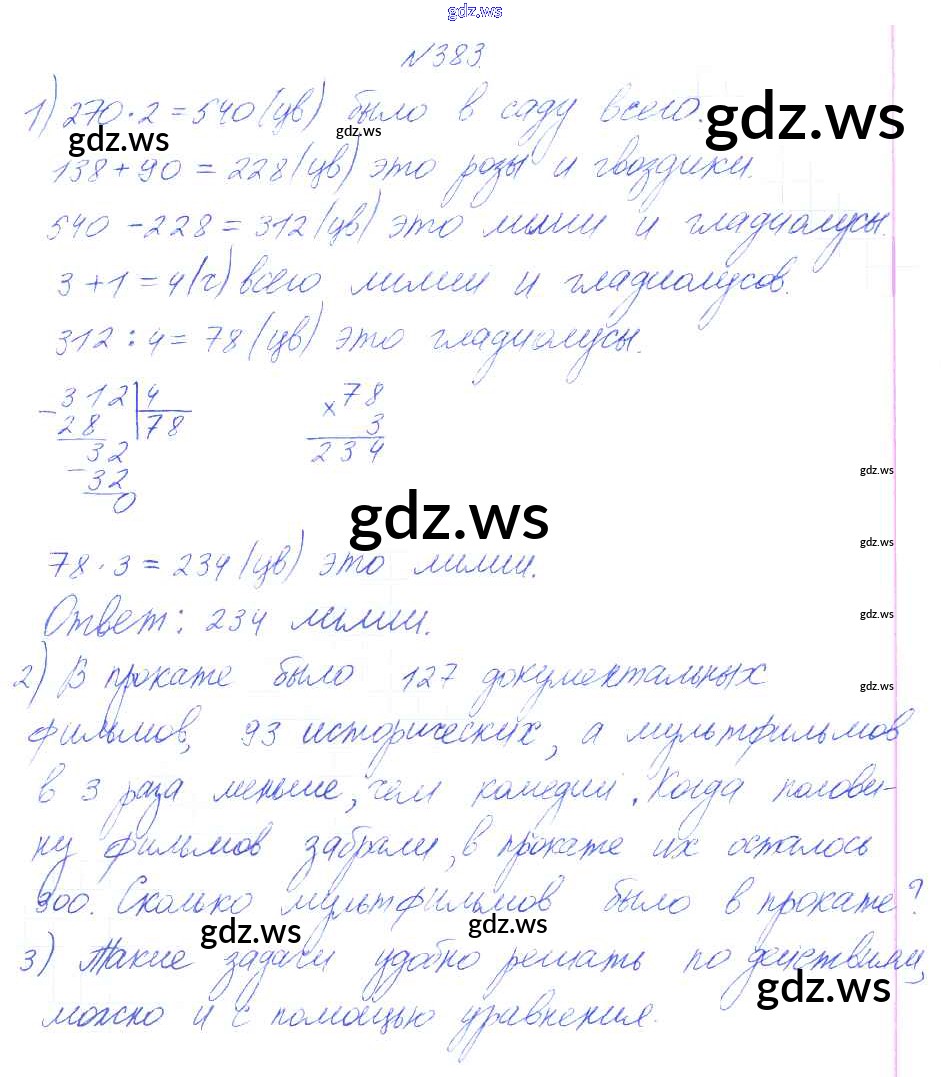 gdz.ws
№383.
1) 270 · 2 = 540 (цв) было в саду всего.
gdz.ws gdz.ws gdz.ws
138 + 90 = 228 (цв) это розы и гвоздики.
540 - 228 = 312 (цв) это лилии и гладиолусы.
3 + 1 = 4 (ч) всего лилии и гладиолусов.
312 : 4 = 78 (цв) это гладиолусы.
- 312 | 4 × 78
28 78 3
32 234
- 32 gdz.ws
0
gdz.ws gdz.ws
78 · 3 = 234 (цв) это лилии.
Ответ: 234 лилии. gdz.ws
2) В прокате было 127 документальных gdz.ws
фильмов, 93 исторических, а мультфильмов
в 3 раза меньше, чем комедии. Когда полови-
ну фильмов забрали, в прокате их осталось
300. Сколько мультфильмов было в прокате?
gdz.ws gdz.ws
3) Такие задачи удобно решать по действиям,
gdz.ws
можно и с помощью уравнения.